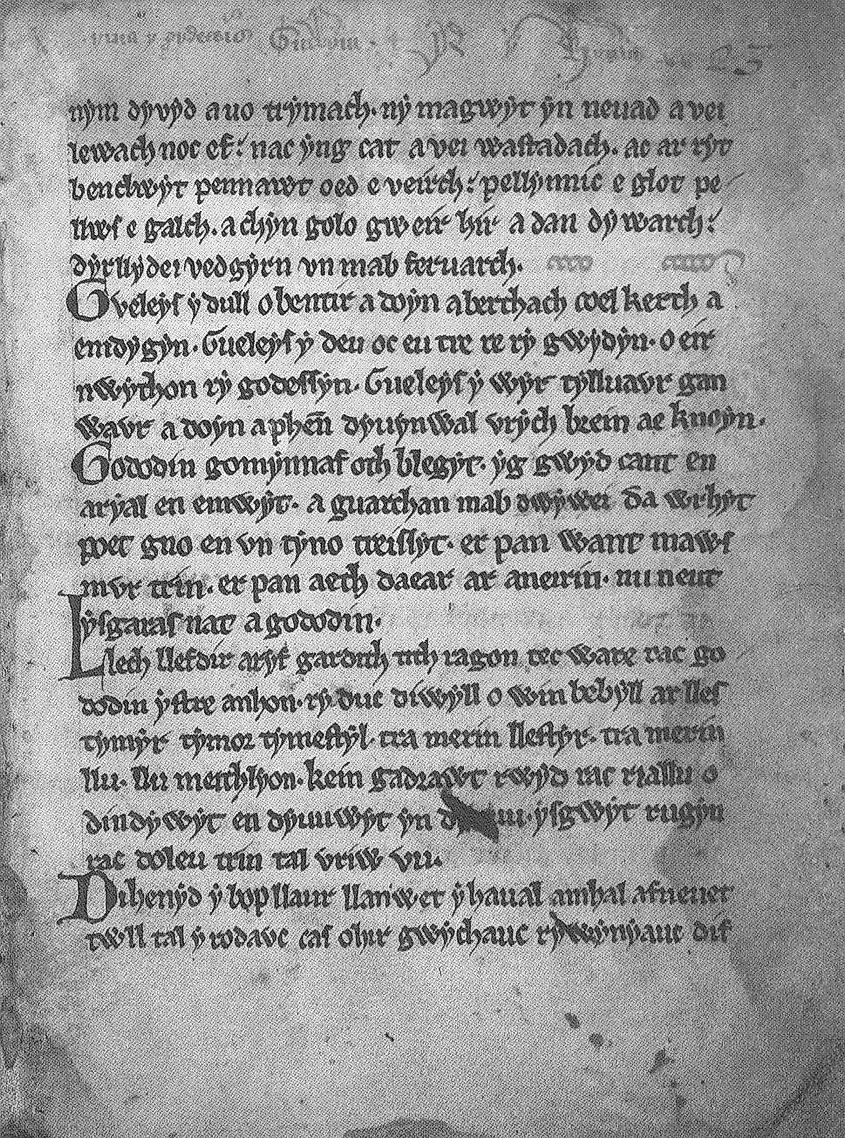 nym dyvyd a uo trymach. ny magwyt yn neuad a vei
lewach noc ef: nac yng cat a vei wastadach. ac ar ryt
benclwyt pennawt oed e veirch: pellynnic e glot pe
llws e galch. a chyn golo gweir hir a dan dywarch:
dyrllydei vedgyrn vn mab feruarch.
Gveleys y dull o bentir a doyn aberthach coel kerth a
emdygyn. Gueleys y deu oc eu tre re ry gwydyn. o eir
nwython ry godessyn. Gueleys y wyr tyllvavr gan
wavr a doyn a phen dyuynwal vrych brein ae knoyn.
Gododin gomynnaf oth blegyt. yg gwyd cant en
aryal en emwyt. a guarchan mab dwywei da wrhyt
poet gno en vn tyno treissyt. er pan want maws
mvr trin. er pan aeth daear ar aneirin. nu neut
ysgaras nat a gododin.
Llech llefdir aryf gardith tith ragon tec ware rac go
dodin ystre anhon. ry duc diwyll o win bebyll ar lles
tymyr tymor tymestyl. tra merin llestyr. tra merin
llu. llu meithlyon. kein gadrawt rwyd rac riallu o
dindywyt en dyuuwyt yn ysgwyt rugyn
rac doleu trin tal vriw vu.
Dihenyd y bop llaur llanwet y haual amhal afneuet
twll tal y rodauc cas ohir gwychauc rywynyauc dif